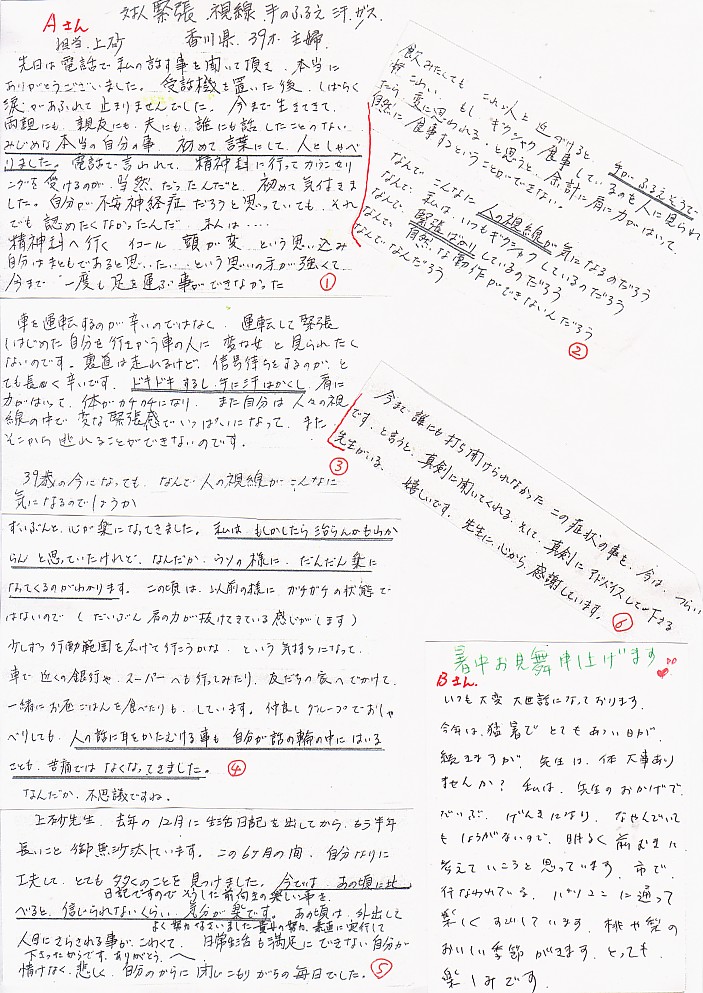 対人緊張 視線 手のふるえ 汗 ガス
Aさん
担当 上砂 香川県 39才 主婦
先日は電話で私の話す事を聞いて頂き、本当に
ありがとうございました。受話機を置いた後、しばらく
涙があふれて止まりませんでした。今まで生きてきて、
両親にも、親友にも、夫にも、誰にも話したことのない
みじめな本当の自分の事、初めて言葉にして、人としゃべ
りました。電話で言われて、精神科に行ってカウンセリ
ングを受けるのが、当然だったんだと、初めて気付きま
した。自分が不安神経症だろうと思っていても、それ
でも認めたくなかったんだ、私は‥‥
精神科へ行く イコール 頭が変 という思い込み
自分はまともであると思いたい…という思いの方が強くて
今まで 一度も足を運ぶ事ができなかった
①
飲みたしても これが人と近づけると、手がふるえそうで
こわい、もし ギクシャク食事しているのも人に見られ
たら変に思われる、と思うと、余計に肩に力がはいって、
自然に食事するということができない。
なんで、こんなに 人の視線が気になるのだろう
なんで、私は、いつもギクシャクしているのだろう
なんで、緊張ばかりしているのだろう
なんで、自然な動作ができないんだろう
なんで、なんだろう
②
車を運転するのが辛いのではなく、運転して緊張
しはじめた自分を行きかう車の人に変な女と見られたく
ないのです。裏道は走れるけど、信号待ちをするのが、と
ても長がく辛いです。ドキドキするし、手に汗はかくし、肩に
力がはいって、体がカチカチになり、また自分は人々の視
線の中で変な緊張感でいっぱいになって、また
そこから逃れることができないのです。
③
39歳の今になっても、なんで人の視線がこんなに
気になるのでしょうか
今まで誰にも打ち開けられなかったこの症状の事を、今は、つらい
です、と言うと、真剣に聞いてくれる、そして、真剣にアドバイスして下さる
先生がいる。
嬉しいです。先生に、心から、感謝しています。
⑥
ずいぶんと、心が楽になってきました。私は、もしかしたら治らんかもわか
らんと思っていたけれど、なんだか、ウソの様に、だんだん楽に
なってくるのがわかります。この頃は、以前の様にガチガチの状態で
はないので(だいぶん肩の力が抜けてきている感じがします)
少しずつ行動範囲を広げて行こうかな、という気持ちになって、
車で近くの銀行や、スーパーへも行ってみたり、友だちの家へでかけて、
一緒にお昼ごはんを食べたりも、しています。仲良しグループでおしゃ
べりしても、人の話に耳をかたむける事も自分が話の輪の中にはいる
ことも、苦痛ではなくなってきました。④
なんだか、不思議ですね。
上砂先生、去年の12月に生活日記を出してから、もう半年
長いこと御無沙汰しています。この6ヶ月の間、自分なりに
工夫して、とても多くのことを見つけました。今では、あの頃に比
べると、信じられないくらい、気分が楽です。あの頃は、外出して
人目にさらされる事が、こわくて、日常生活も満足にできない自分が
情けなく、悲しく、自分のからに閉じこもりがちの毎日でした。⑤
日記ですのでそうした前向きの楽しい事を、
よく努力なさいました 貴女の努力、素直に実行して
下さったからです、ありがとう。
暑中お見舞申上げます
Bさん
いつも大変 大世話になっております。
今年は、猛暑で とてもあつい日が、
続きますが、先生は、体 大事あり
ませんか? 私は、先生のおかげで、
だいぶ、げんきになり、なやんでいて
もしょうがないので、明るく前むきに
考えていこうと思っています。市で、
行なわれている、パソコンに通って
楽しくすごしています。桃や梨の
おいしい季節がきます。とっても
楽しみです。